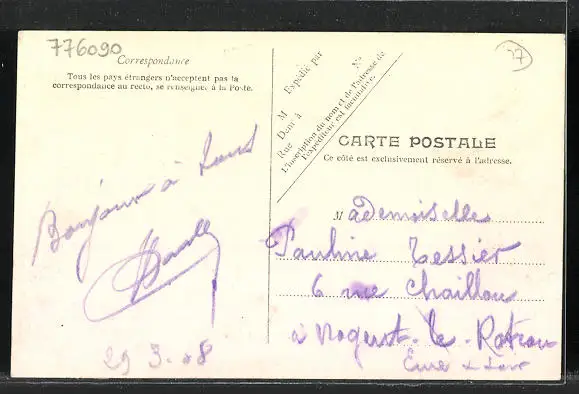 776090
Correspondance
Tous les pays étrangers n'acceptent pas la
correspondance au recto, se renseigner à la Poste.
Bonjour à tous
29 3. 08
Expédié par
M
Demt à
Rue
No
L'inscription du nom et de l'adresse de
l'expéditeur est facultative.
27
CARTE POSTALE
Ce côté est exclusivement réservé à l'adresse.
Mademoiselle
Pauline Tessier
6 rue Chaillou
à Nogent-le-Rotrou
Eure & Loir